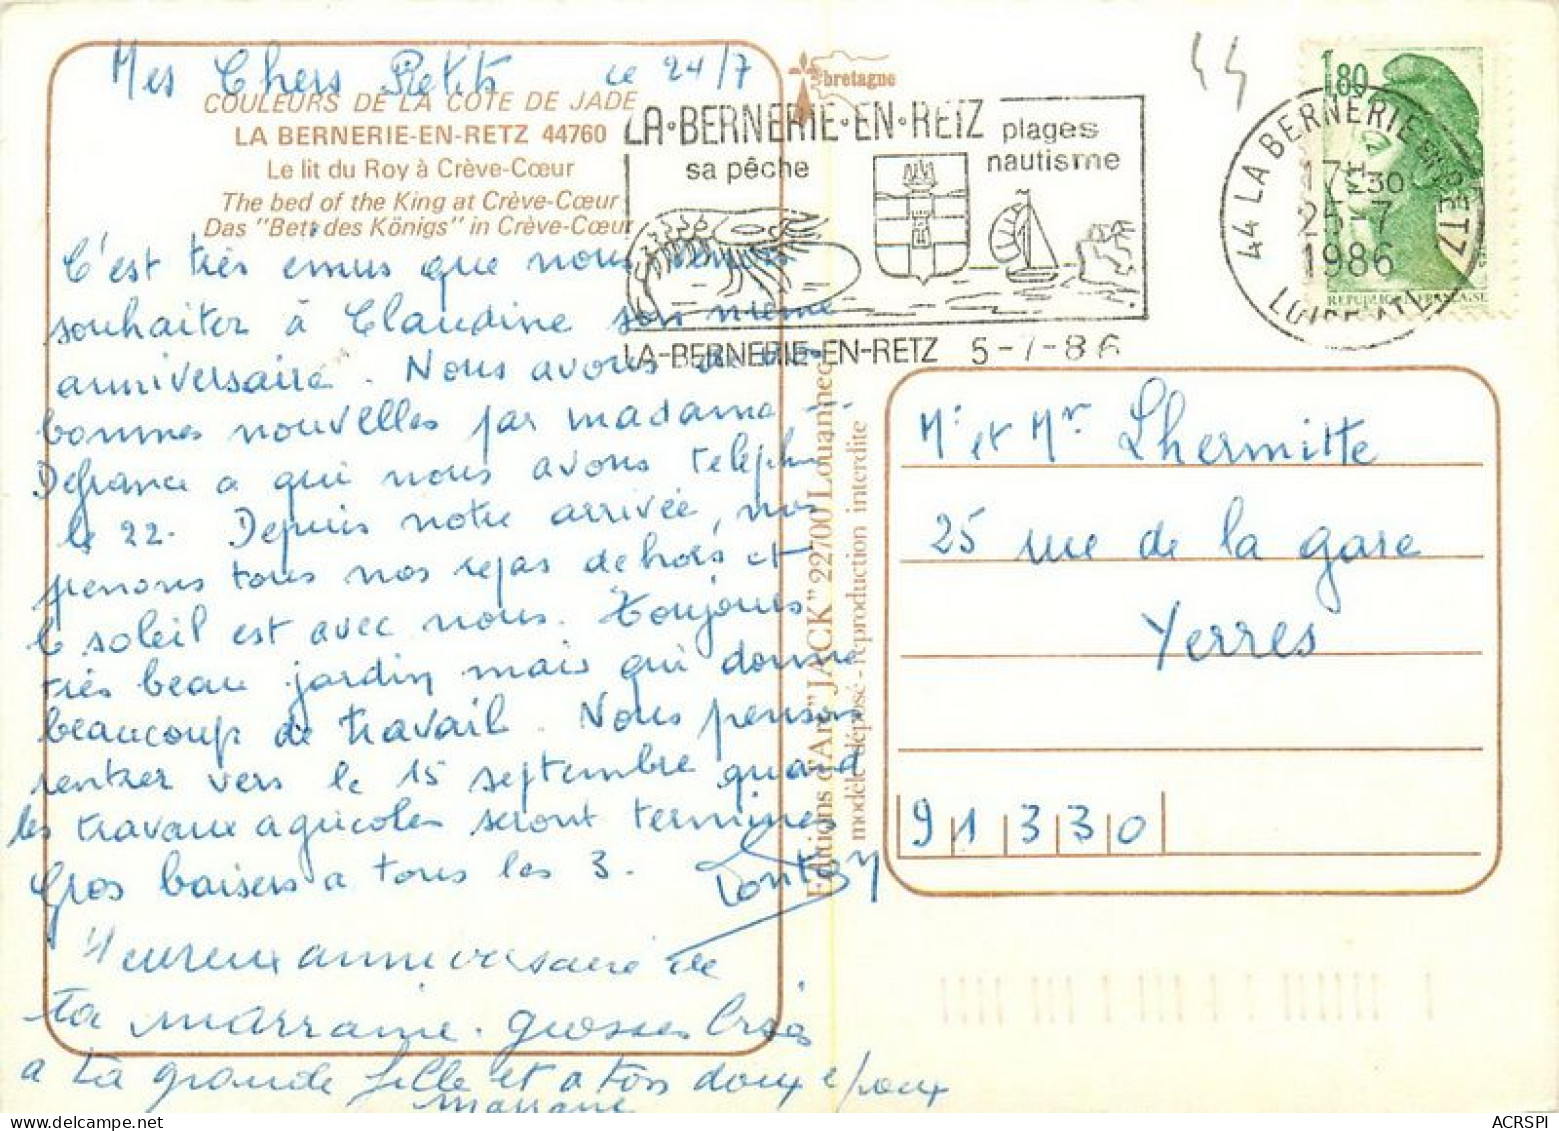 Mes Chers Petits le 24/7
COULEURS DE LA COTE DE JADE
LA BERNERIE-EN-RETZ 44760
Le lit du Roy à Crève-Cœur
The bed of the King at Crève-Cœur
Das "Bett des Königs" in Crève-Cœur
C'est très emus que nous venons
souhaiter à Claudine son
anniversaire. Nous avons de
bonnes nouvelles par madame
Defrance a qui nous avons teleph
le 22. Depuis notre arrivée, nos
prenons tous nos repas dehors et
le soleil est avec nous. Toujours
très beau jardin mais qui donne
beaucoup de travail. Nous pensons
rentrer vers le 15 septembre quand
les travaux agricoles seront termines
Gros baisers a tous les 3. Tonton
Heureux anniversaire de
ta marraine. grosses bises
a ta grande fille et a ton doux epoux
marraine
bretagne
Editions d'Art "JACK" 22700 Louannec
modèle déposé - reproduction interdite
LA•BERNERIE•EN•RETZ
sa pêche
plages
nautisme
LA-BERNERIE-EN-RETZ 5-7-86
44
1,80
REPUBLIQUE FRANÇAISE
44 LA BERNERIE EN RETZ
17H30
25-7
1986
LOIRE ATL
Mr et Mr Lhermitte
25 rue de la gare
Yerres
91330
ACRSPI